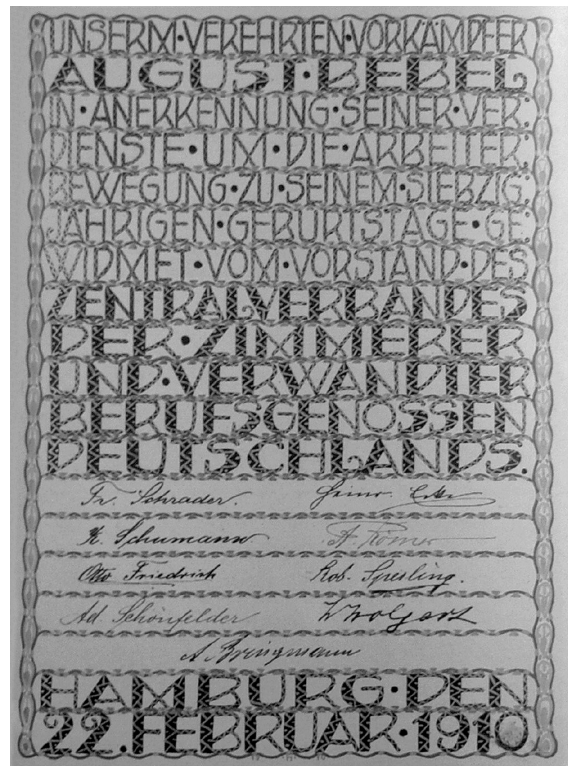 UNSERM·VEREHRTEN·VORKÄMPFER
AUGUST·BEBEL
IN·ANERKENNUNG·SEINER·VER:
DIENSTE·UM·DIE·ARBEITER:
BEWEGUNG·ZU·SEINEM·SIEBZIG:
JÄHRIGEN·GEBURTSTAGE·GE:
WIDMET·VOM·VORSTAND·DES
ZENTRALVERBANDES
DER·ZIMMERER
UND·VERWANDTER
BERUFSGENOSSEN
DEUTSCHLANDS.
Fr. Schrader. Heinr.
K. Schumann A. Römer
Otto Friedrich Rob. Sperling.
Ad. Schönfelder W Wolgast
A. Bringmann
HAMBURG·DEN
22.FEBRUAR·1910